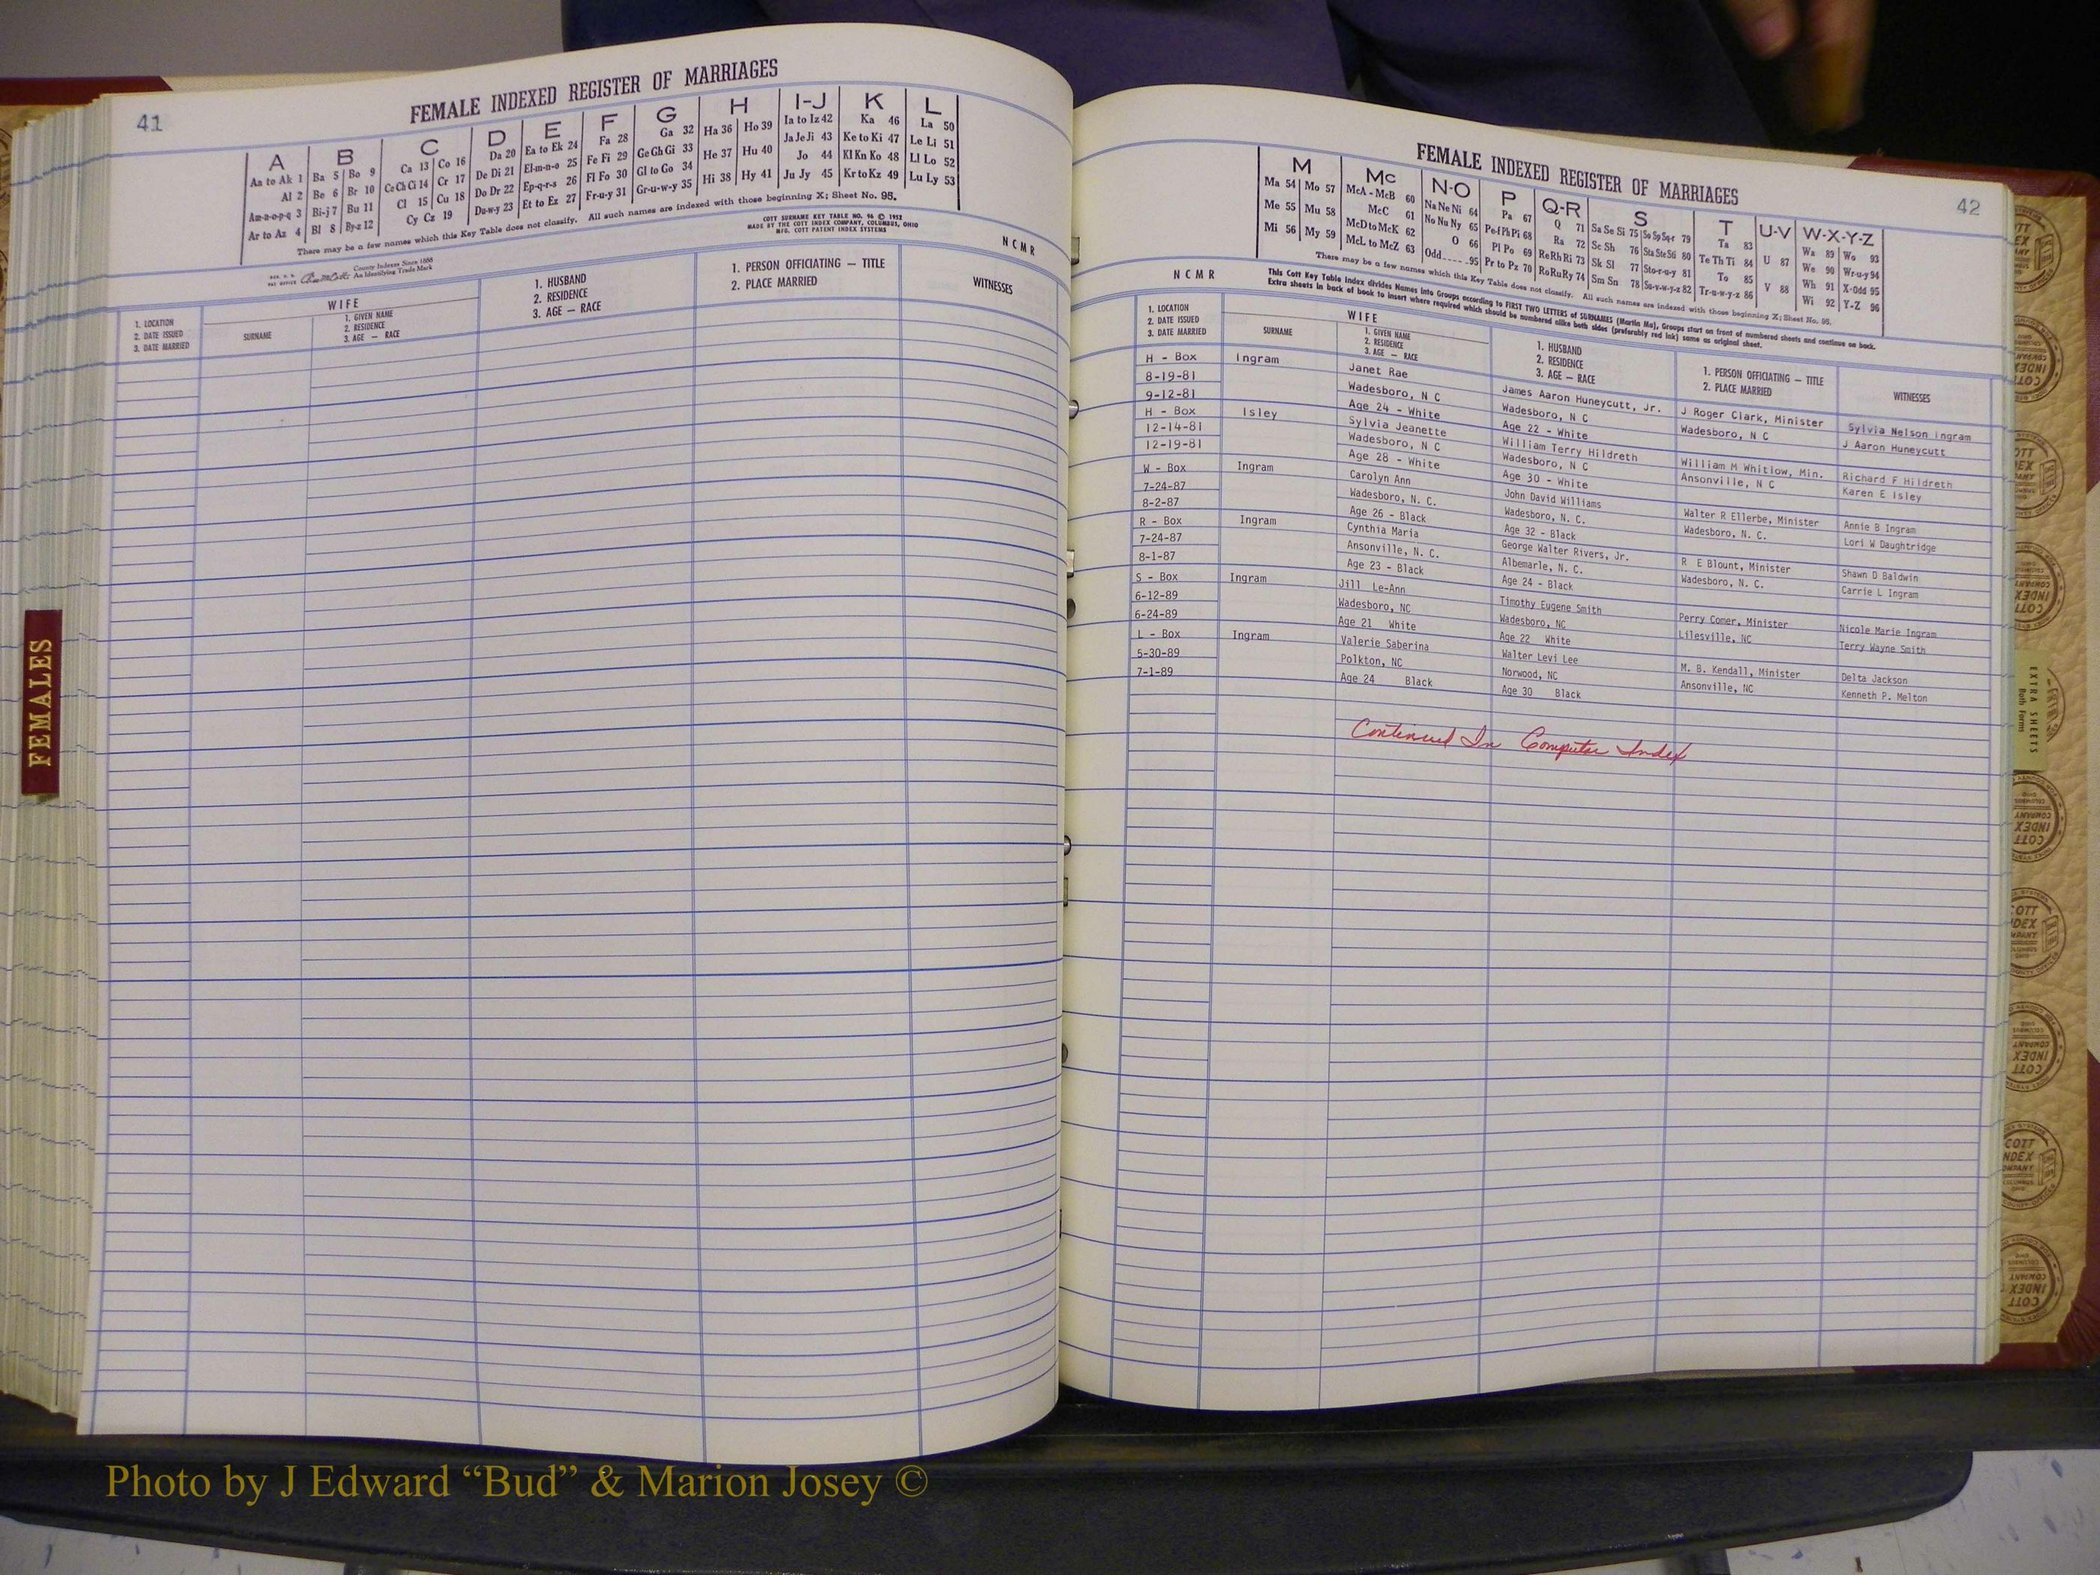 41
FEMALE INDEXED REGISTER OF MARRIAGES
A B C D E F G H I-J K L
Aa to Ak 1 Ba 5 Bo 9 Ca 13 Co 16 Da 20 Ea to Ek 24 Fa 28 Ga 32 Ha 36 Ho 39 Ia to Iz 42 Ka 46 La 50
Al 2 Be 6 Br 10 Ce Ch Ci 14 Cr 17 De Di 21 El-m-n-o 25 Fe Fi 29 Ge Gh Gi 33 He 37 Hu 40 Ja Je Ji 43 Ke to Ki 47 Le Li 51
Am-n-o-p-q 3 Bi-j 7 Bu 11 Cl 15 Cu 18 Do Dr 22 Ep-q-r-s 26 Fl Fo 30 Gl to Go 34 Hi 38 Hy 41 Jo 44 Kl Kn Ko 48 Ll Lo 52
Ar to Az 4 Bl 8 By-z 12 Cy Cz 19 Du-w-y 23 Et to Ez 27 Fr-u-y 31 Gr-u-w-y 35 Ju Jy 45 Kr to Kz 49 Lu Ly 53
There may be a few names which this Key Table does not classify. All such names are indexed with those beginning X; Sheet No. 95.
County Indexes Since 1888
An Identifying Trade Mark
COTT SURNAME KEY TABLE NO. 96 © 1952
MADE BY THE COTT INDEX COMPANY, COLUMBUS, OHIO
MFG. COTT PATENT INDEX SYSTEMS
N C M R
1. LOCATION
2. DATE ISSUED
3. DATE MARRIED
WIFE
SURNAME
1. GIVEN NAME
2. RESIDENCE
3. AGE — RACE
1. HUSBAND
2. RESIDENCE
3. AGE — RACE
1. PERSON OFFICIATING — TITLE
2. PLACE MARRIED
WITNESSES
FEMALES
42
FEMALE INDEXED REGISTER OF MARRIAGES
M Mc N-O P Q-R S T U-V W-X-Y-Z
Ma 54 Mo 57 McA - McB 60 Na Ne Ni 64 Pa 67 Q 71 Sa Se Si 75 So Sp Sq-r 79 Ta 83 U 87 Wa 89 Wo 93
Me 55 Mu 58 McC 61 No Nu Ny 65 Pe-f Ph Pi 68 Ra 72 Sc Sh 76 Sta Ste Sti 80 Te Th Ti 84 V 88 We 90 Wr-u-y 94
Mi 56 My 59 McD to McK 62 O 66 Pl Po 69 Re Rh Ri 73 Sk Sl 77 Sto-r-u-y 81 To 85 Wh 91 X-Odd 95
McL to McZ 63 Odd 95 Pr to Pz 70 Ro Ru Ry 74 Sm Sn 78 Su-v-w-y-z 82 Tr-u-w-y-z 86 Wi 92 Y-Z 96
There may be a few names which this Key Table does not classify. All such names are indexed with those beginning X; Sheet No. 95.
This Cott Key Table Index divides Names into Groups according to FIRST TWO LETTERS of SURNAMES (Martin Ma), Groups start on front of numbered sheets and continue on back.
Extra sheets in back of book to insert where required which should be numbered alike both sides (preferably red ink) same as original sheet.
N C M R
1. LOCATION
2. DATE ISSUED
3. DATE MARRIED
WIFE
SURNAME
1. GIVEN NAME
2. RESIDENCE
3. AGE — RACE
1. HUSBAND
2. RESIDENCE
3. AGE — RACE
1. PERSON OFFICIATING — TITLE
2. PLACE MARRIED
WITNESSES
H - Box Ingram Janet Rae James Aaron Huneycutt, Jr. J Roger Clark, Minister Sylvia Nelson Ingram
8-19-81 Wadesboro, N C Wadesboro, N C Wadesboro, N C J Aaron Huneycutt
9-12-81 Age 24 - White Age 22 - White
H - Box Isley Sylvia Jeanette William Terry Hildreth William M Whitlow, Min. Richard F Hildreth
12-14-81 Wadesboro, N C Wadesboro, N C Ansonville, N C Karen E Isley
12-19-81 Age 28 - White Age 30 - White
W - Box Ingram Carolyn Ann John David Williams Walter R Ellerbe, Minister Annie B Ingram
7-24-87 Wadesboro, N. C. Wadesboro, N. C. Wadesboro, N. C. Lori W Daughtridge
8-2-87 Age 26 - Black Age 32 - Black
R - Box Ingram Cynthia Maria George Walter Rivers, Jr. R E Blount, Minister Shawn D Baldwin
7-24-87 Ansonville, N. C. Albemarle, N. C. Wadesboro, N. C. Carrie L Ingram
8-1-87 Age 23 - Black Age 24 - Black
S - Box Ingram Jill Le-Ann Timothy Eugene Smith Perry Comer, Minister Nicole Marie Ingram
6-12-89 Wadesboro, NC Wadesboro, NC Lilesville, NC Terry Wayne Smith
6-24-89 Age 21 White Age 22 White
L - Box Ingram Valerie Saberina Walter Levi Lee M. B. Kendall, Minister Delta Jackson
5-30-89 Polkton, NC Norwood, NC Ansonville, NC Kenneth P. Melton
7-1-89 Age 24 Black Age 30 Black
Continued In Computer Index
EXTRA SHEETS
Both Forms
COTT
INDEX
COMPANY
COLUMBUS
OHIO
Photo by J Edward “Bud” & Marion Josey ©